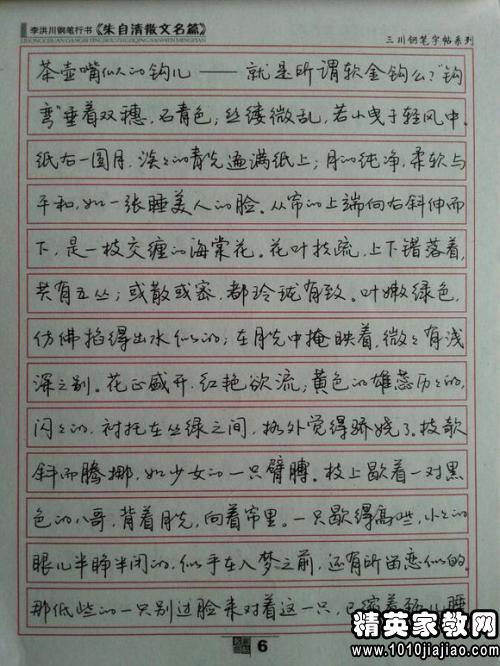 李洪川钢笔行书《朱自清散文名篇》
LIHONGCHUAN GANGBI XINGSHU ZHUZIQING SANWEN MINGPIAN
三川钢笔字帖系列
茶壶嘴似的钩儿——就是所谓软金钩么?”钩
弯”垂着双穗,石青色;丝缕微乱,若小曳于轻风中。
纸右一圆月,淡々的青光遍满纸上;月的纯净,柔软与
平和,如一张睡美人的脸。从帘的上端向右斜伸而
下,是一枝交缠的海棠花。花叶扶疏,上下错落着,
共有五丛;或散或密,都玲珑有致。叶嫩绿色,
仿佛掐得出水似的;在月光中掩映着,微々有浅
深之别。花正盛开,红艳欲流;黄色的雄蕊历々的,
闪々的。衬托在丛绿之间,格外觉得娇娆了。枝欹
斜而腾挪,如少女的一只臂膊。枝上歇着一对黑
色的八哥,背着月光,向着帘里。一只歇得高些,小々的
眼儿半睁半闭的,似乎在入梦之前,还有所留恋似的。
那低些的一只别过脸来对着这一只,已缩着颈儿睡
6
精英家教网
www.1010jiajiao.com